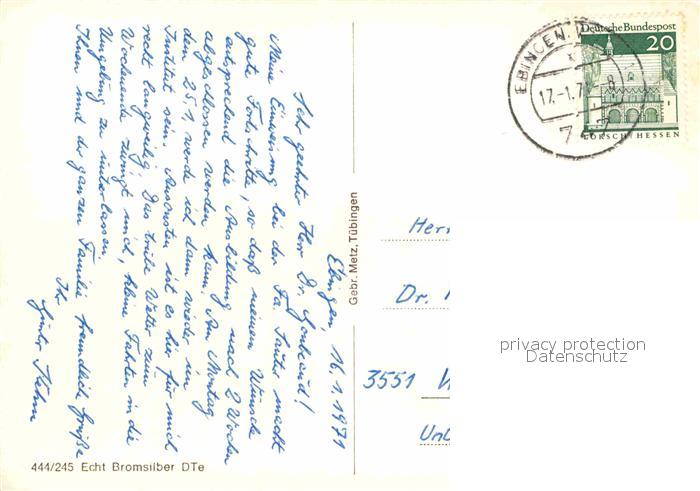 Ebingen, 16.1.1971
Sehr geehrter Herr Dr. !
Meine Einweisung bei der Fa. Sauter macht
gute Fortschritte, so daß meinem Wunsche
entsprechend die Ausbildung nach 2 Wochen
abgeschlossen werden kann. Am Montag
den 25.1. werde ich dann wieder im
Institut sein. Ansonsten ist es hier für mich
recht langweilig. Das trübe Wetter zum
Wochenende zwingt mich, kleine Fahrten in die
Umgebung zu unterlassen.
Ihnen und der ganzen Familie freundliche Grüße
Ihr
Günter
Gebr. Metz, Tübingen
444/245 Echt Bromsilber DTe
EBINGEN
17.-1.71-8
Deutsche Bundespost
20
LORSCH/HESSEN
Herr
Dr.
3551
privacy protection
Datenschutz